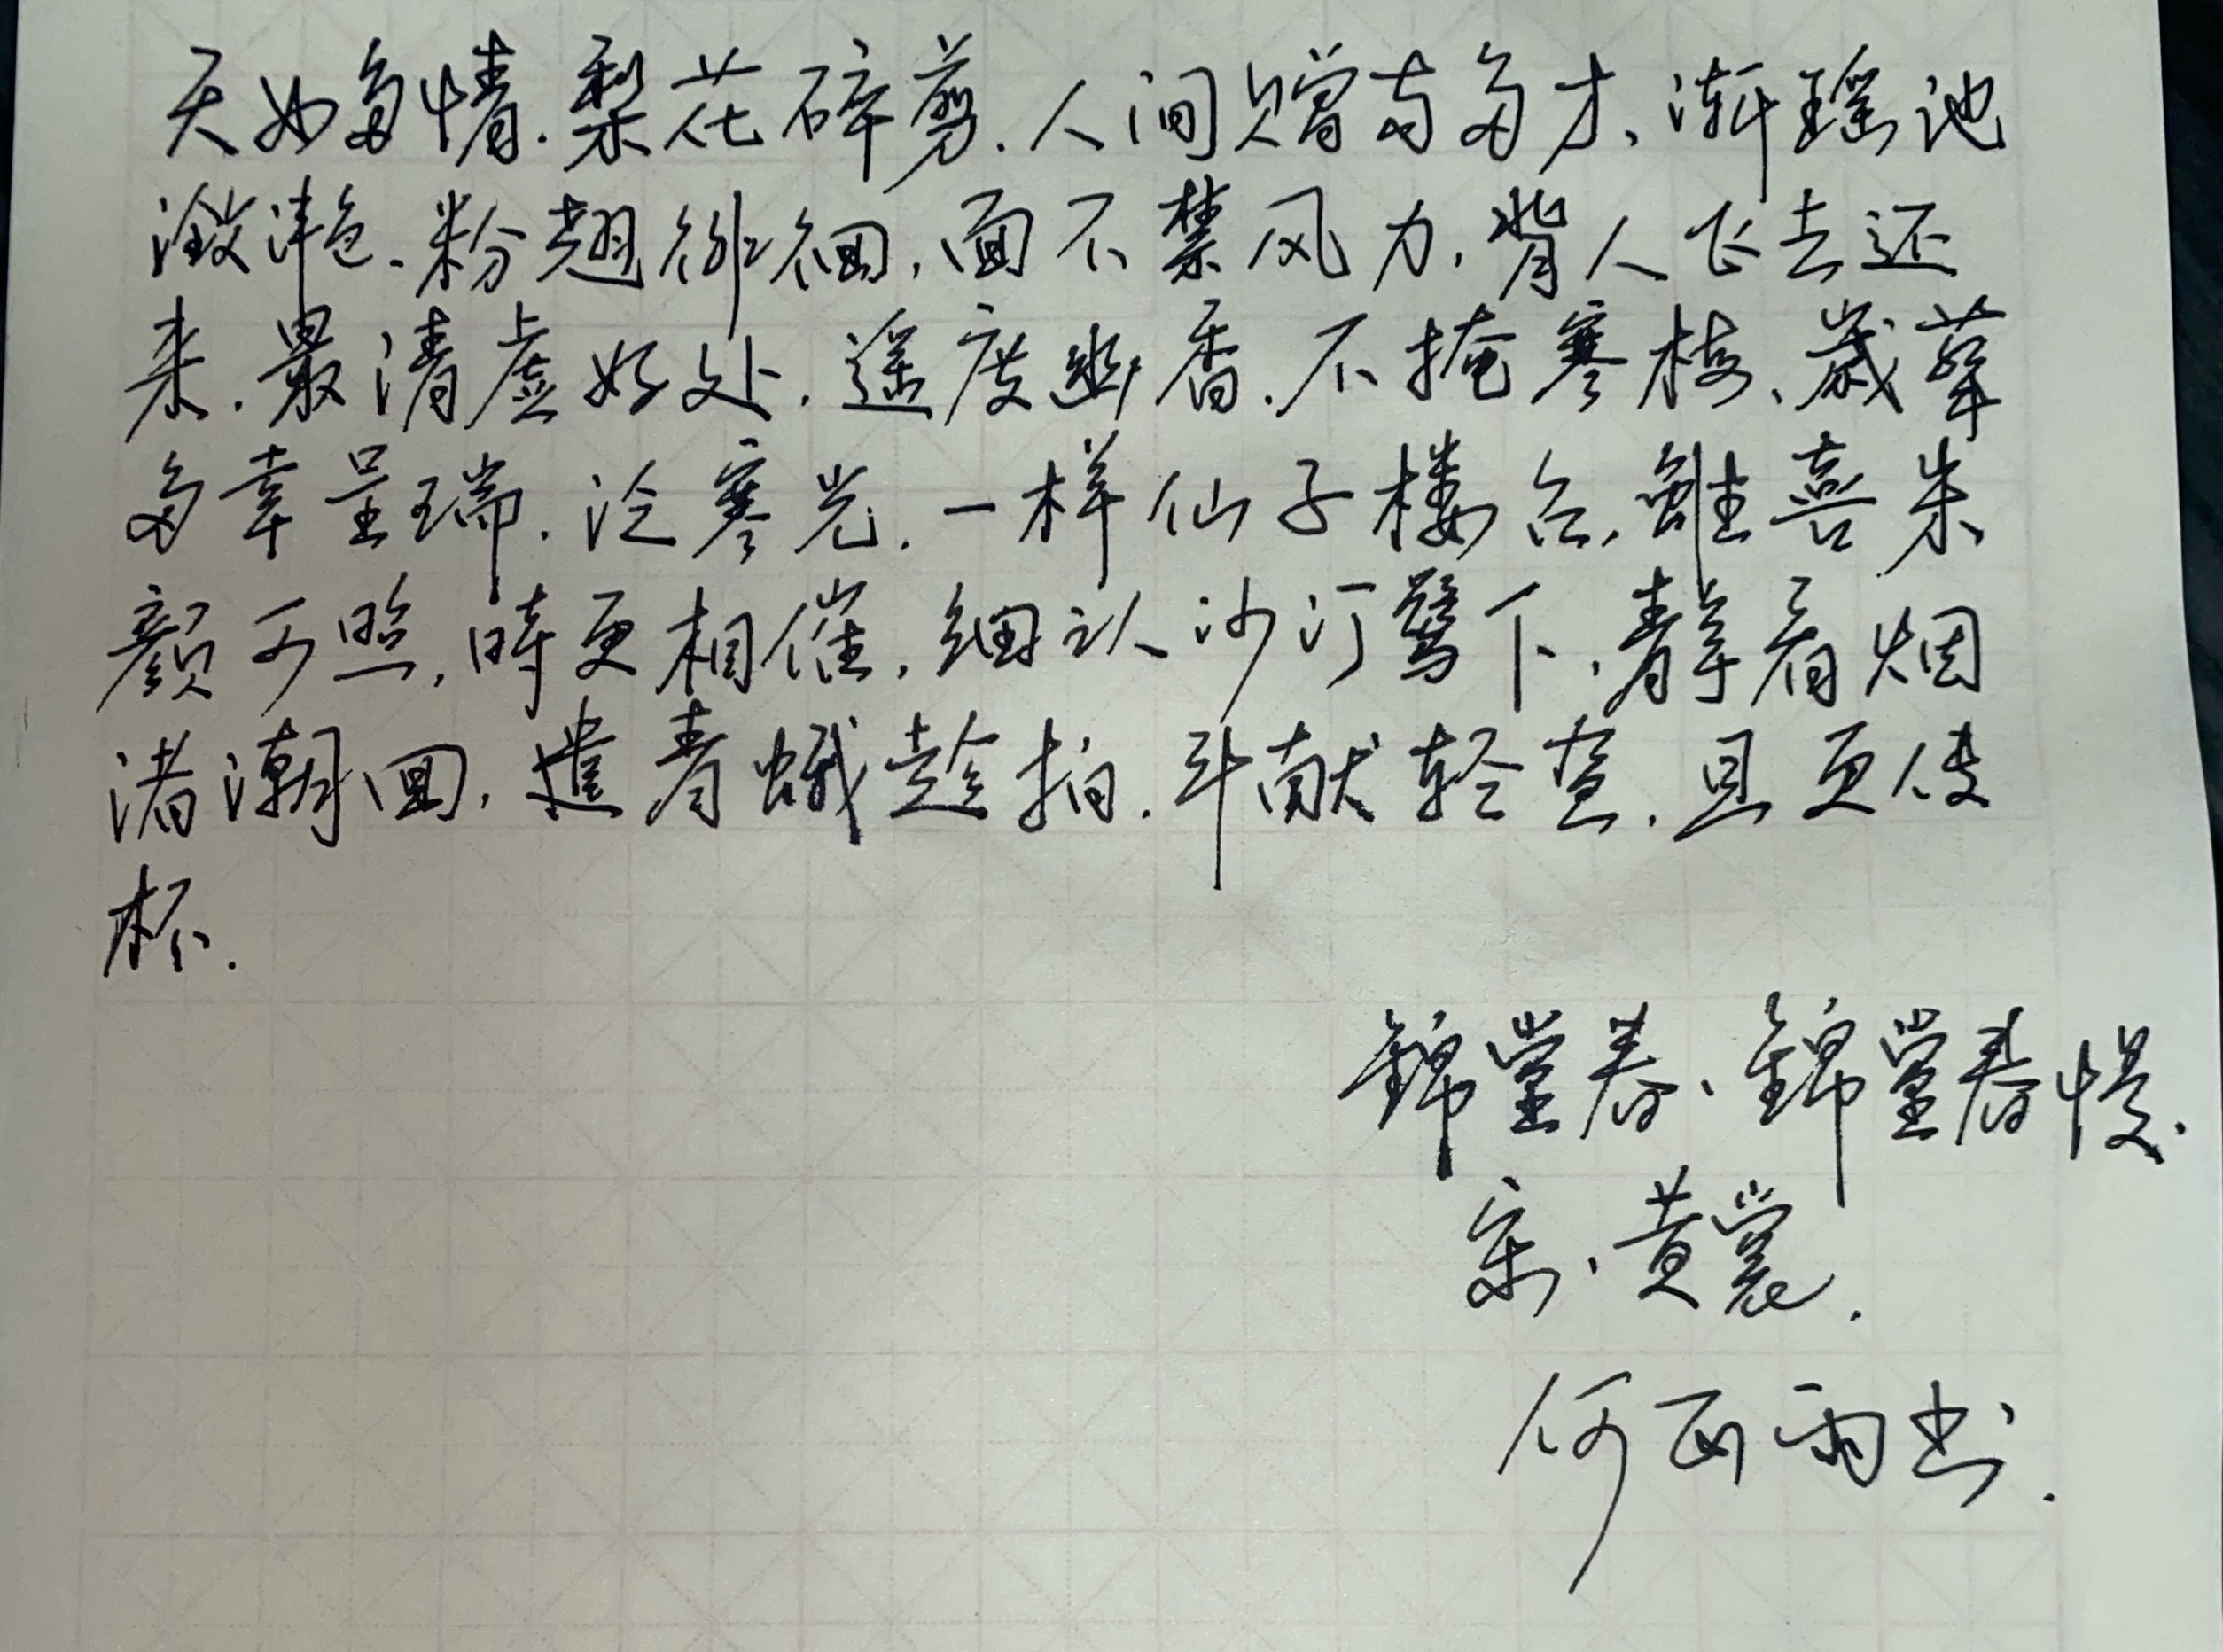 天如多情.梨花碎剪.人间赠与多才、渐瑶池
潋滟、粉翅徘徊,面不禁风力,背人飞去还
来.最清虚好处.遥度幽香.不掩寒梅、歲華
多幸呈瑞.泛寒光.一样仙子楼台,雖喜朱
颜可照,時更相催,细认沙汀鹭下,静看烟
渚潮回,遣青蛾趁拍.斗献轻盈.且更传
杯.
錦堂春、錦堂春慢.
宋.黄裳.
何西雨书.